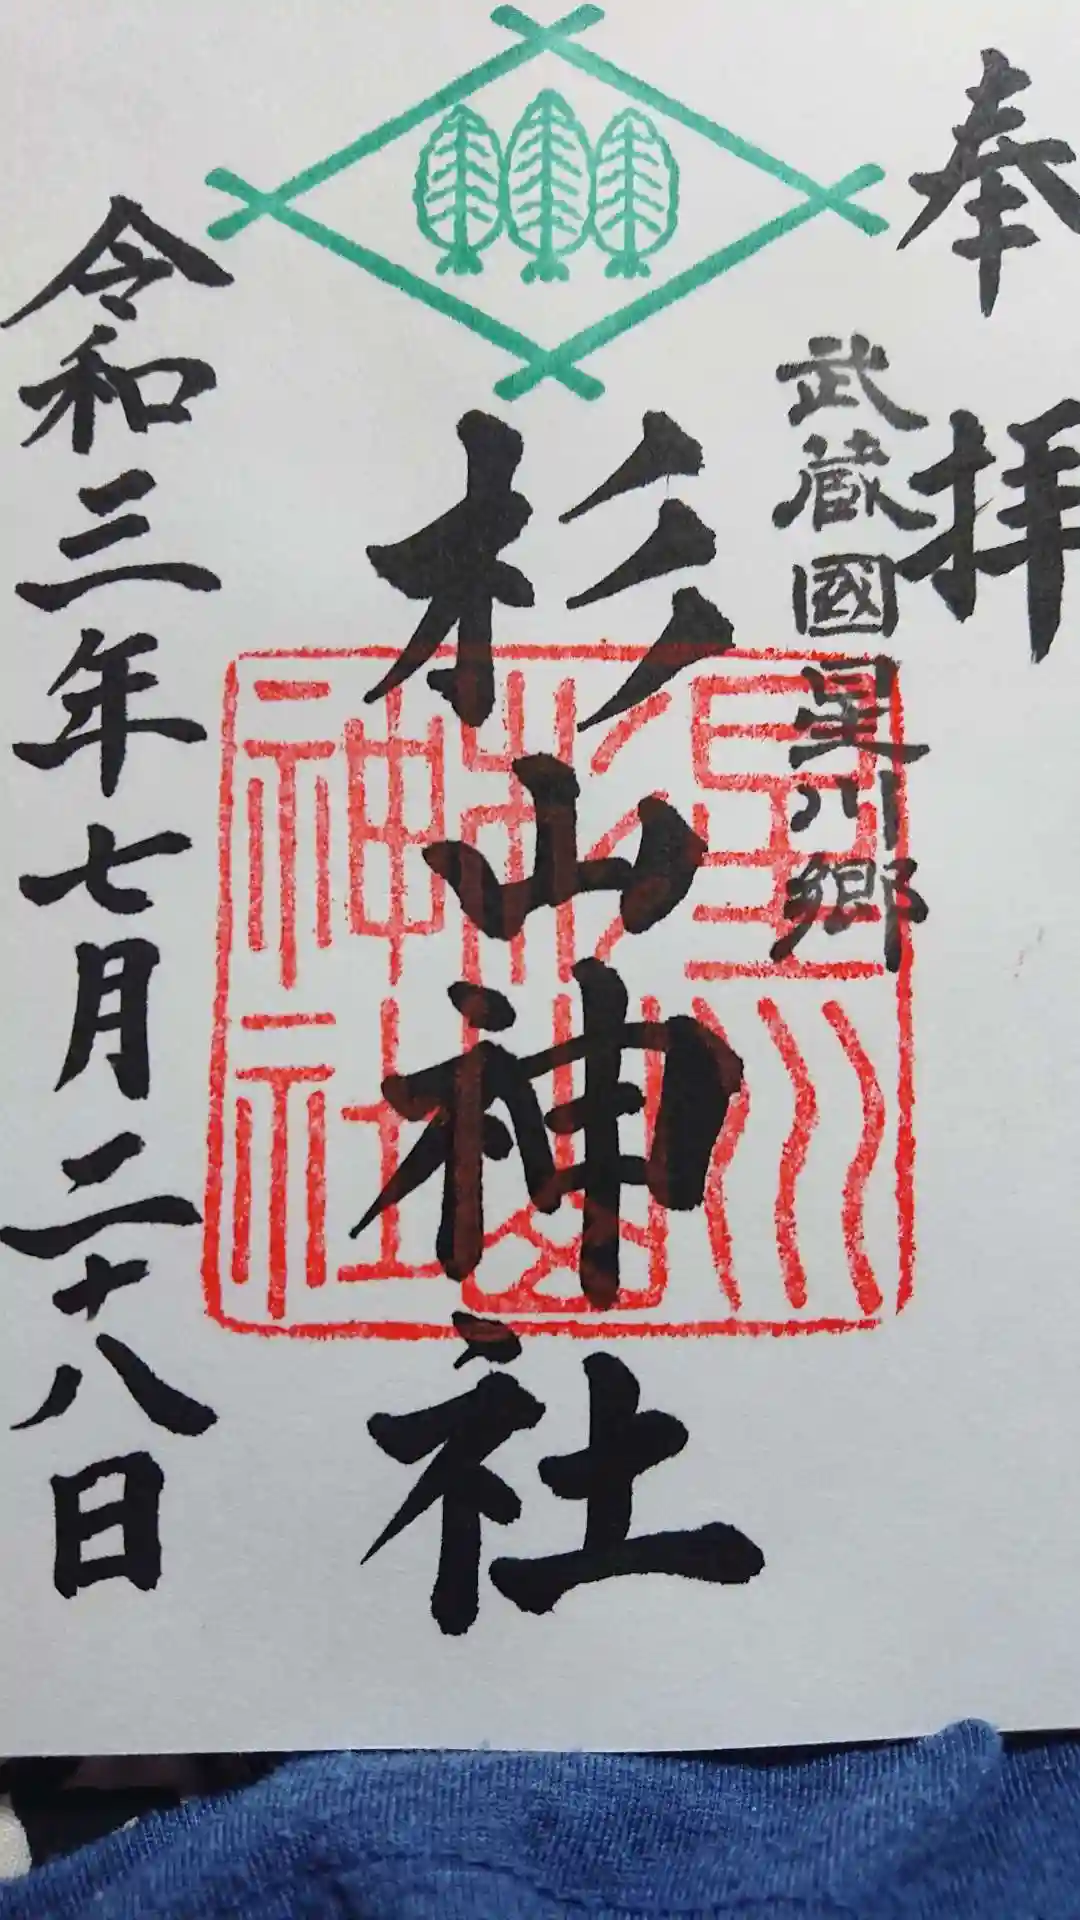 奉拝
武蔵國星川郷
杉山神社
星川杉山神社
令和三年七月二十八日